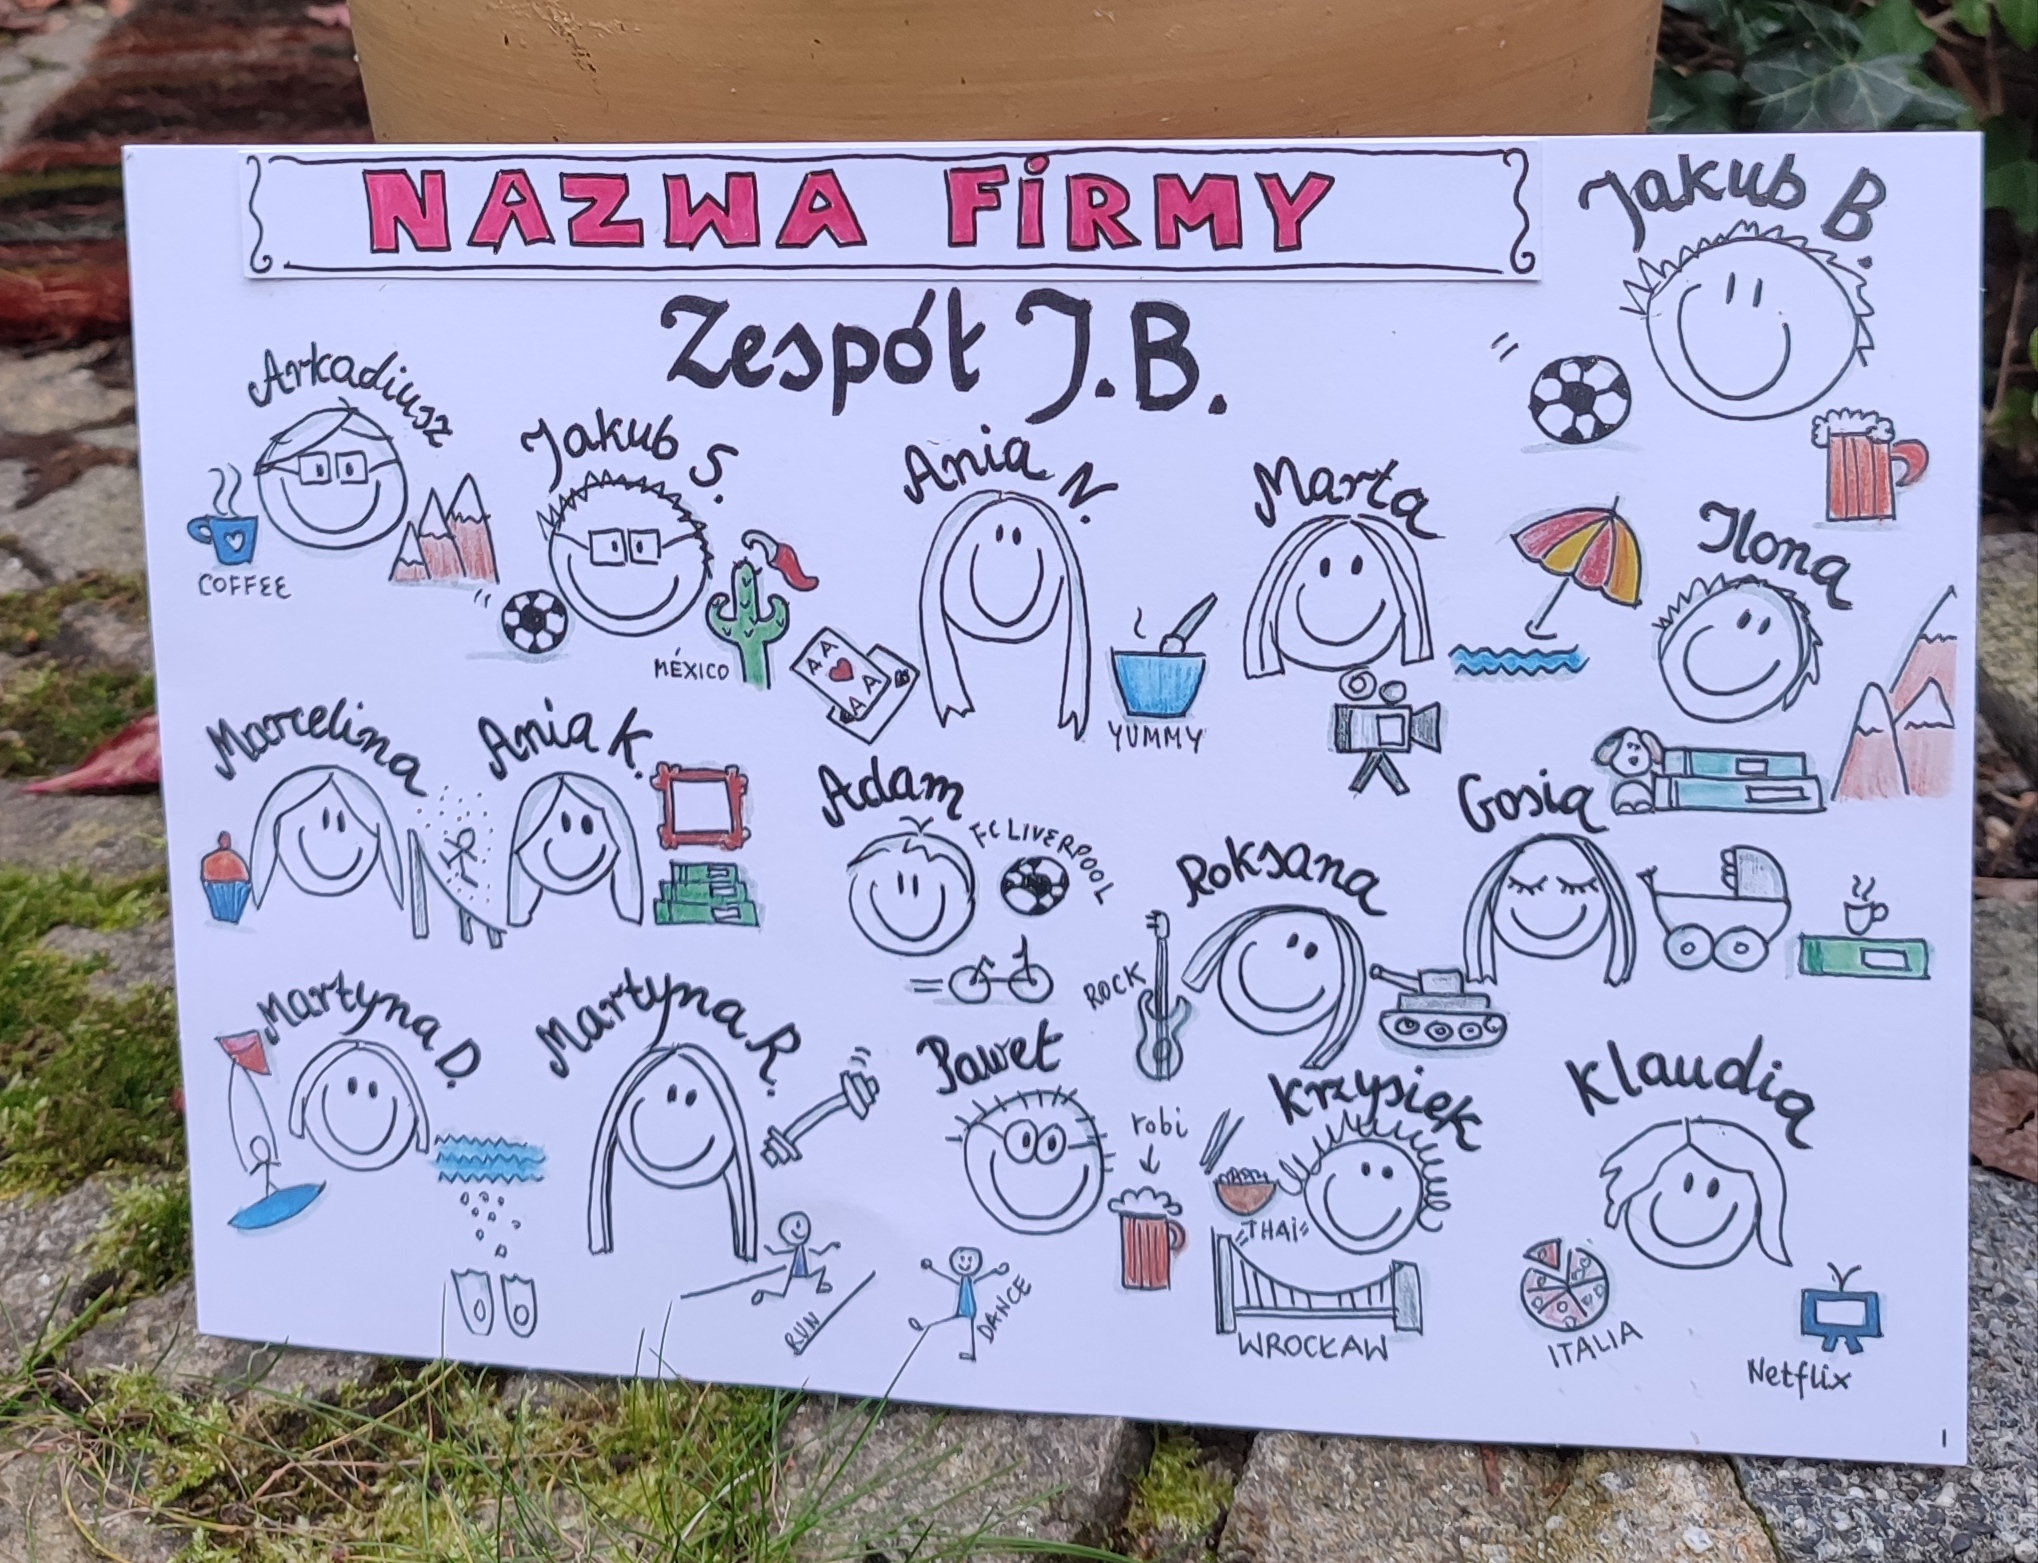 NAZWA FiRMY
Jakub B.
Zespół J.B.
Arkadiusz
COFFEE
Jakub S.
MÉXICO
Ania N.
A A
A A
YUMMY
Marta
Ilona
Marcelina
Ania K.
Adam
FC LIVERPOOL
Roksana
ROCK
Gosia
Martyna D.
Martyna R.
RUN
DANCE
Paweł
robi
Krzysiek
THAi
WROCŁAW
Klaudia
ITALIA
Netflix